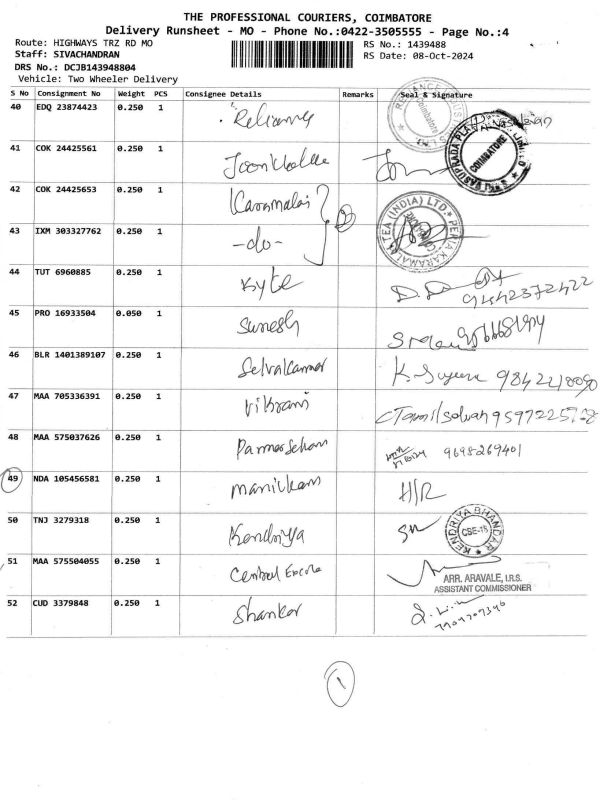 THE PROFESSIONAL COURIERS, COIMBATORE
Delivery Runsheet - MO - Phone No.:0422-3505555 - Page No.:4
Route: HIGHWAYS TRZ RD MO RS No.: 1439488
Staff: SIVACHANDRAN RS Date: 08-Oct-2024
DRS No.: DCJB143948804
Vehicle: Two Wheeler Delivery
S No Consignment No Weight PCS Consignee Details Remarks Seal & Signature
40 EDQ 23874423 0.250 1 Reliance
41 COK 24425561 0.250 1 COIMBATORE
42 COK 24425653 0.250 1 Karamalai 2
43 IXM 303327762 0.250 1 -do- TEA (INDIA) LTD. * PERIA KARAMALAI
44 TUT 6960885 0.250 1 Kyte 9442372422
45 PRO 16933504 0.050 1 Suresh
46 BLR 1401389107 0.250 1 Selvakumar
47 MAA 705336391 0.250 1 Vikram
48 MAA 575037626 0.250 1 9698269401
49 NDA 105456581 0.250 1 Manickam H/R
50 TNJ 3279318 0.250 1 Kendriya KENDRIYA BHANDAR * CBE-18
51 MAA 575504055 0.250 1 Central Excise
ARR. ARAVALE, I.R.S.
ASSISTANT COMMISSIONER
52 CUD 3379848 0.250 1 Shankar
1